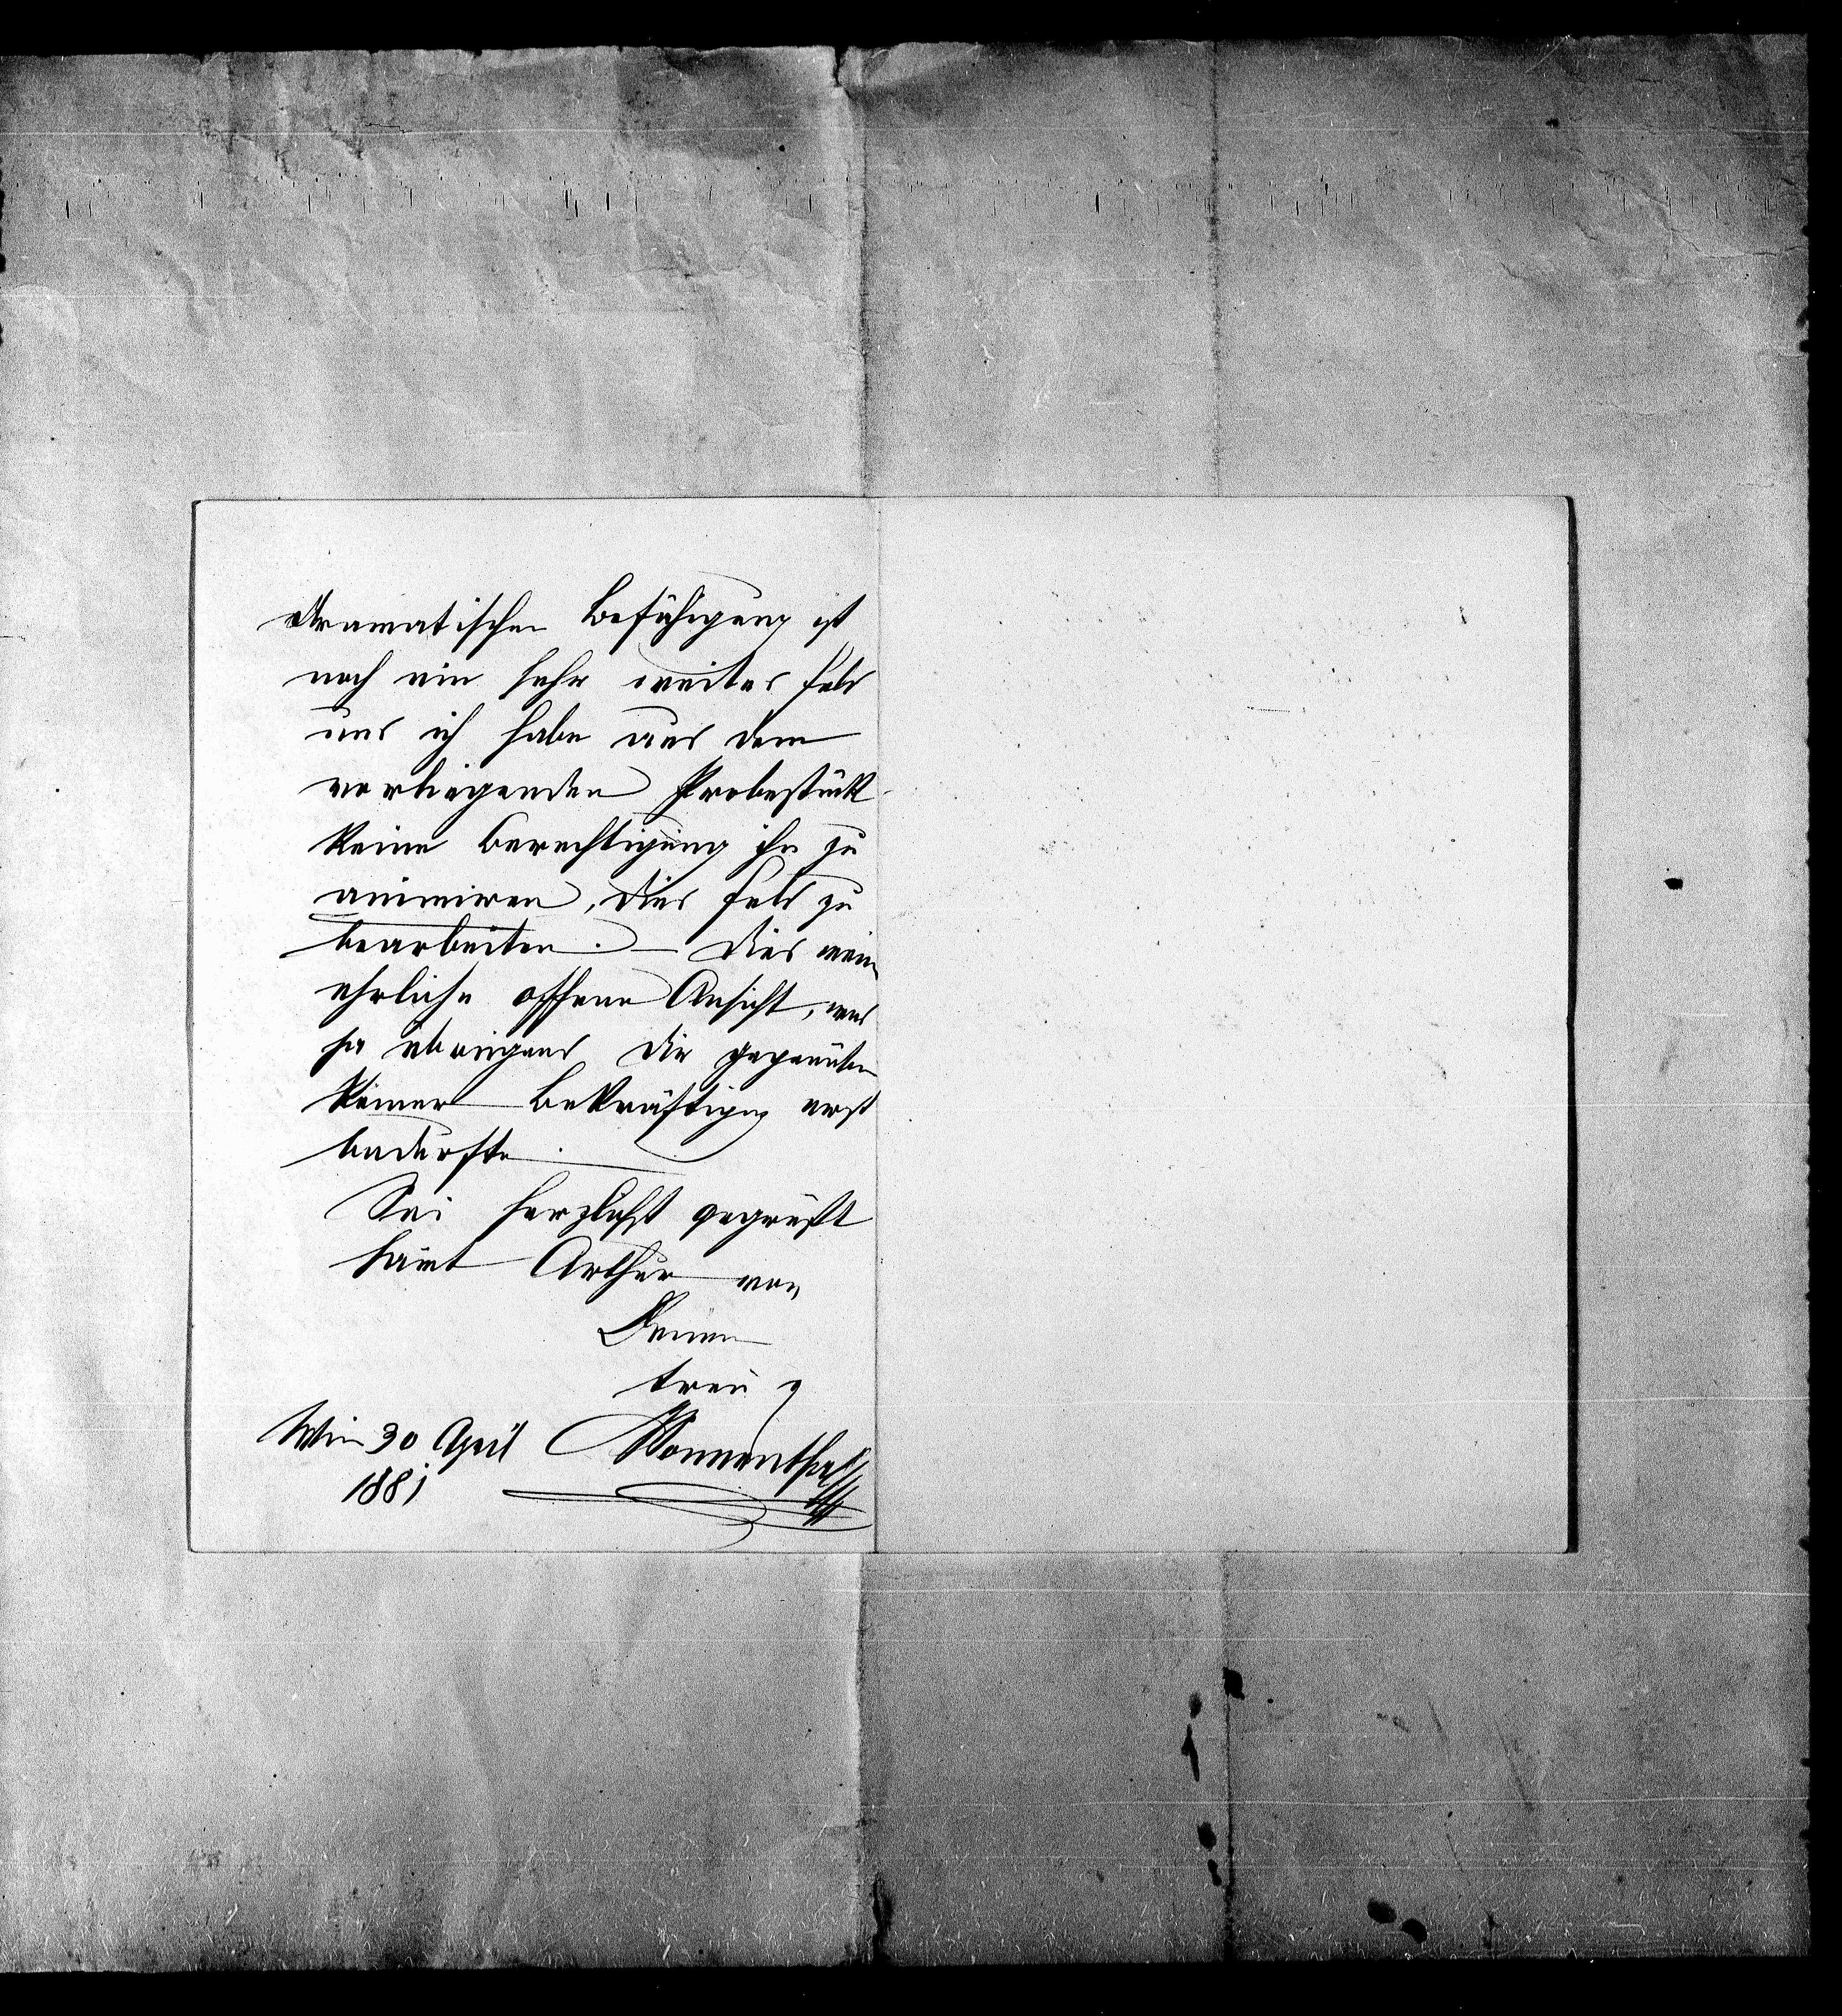 dramatischen Befähigung ist
noch ein sehr weites Feld
und ich habe aus dem
vorliegenden Probestück
keine Berechtigung ihn zu
animiren, dies Feld zu
bearbeiten. — Dies meine
ehrliche offene Ansicht, was
ja übrigens Dir gegenüber
keiner Bekräftigung erst
bedürfte.
Sei herzlichst gegrüßt
samt Arthur von
Deinem
treu
Sonnenthal
Wien 30 April
1881